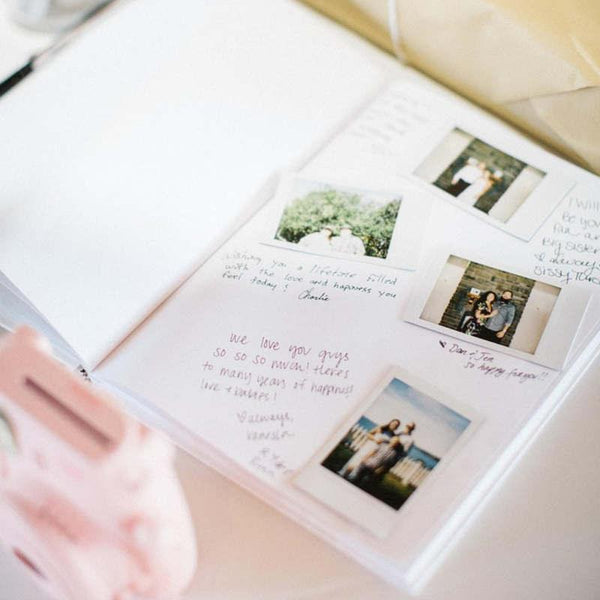 I Will
Be you
Fan an
Big Sister
♡ always
Sissy
Wishing you a lifetime filled
with the love and happiness you
feel today!
Charlie
♥ Dan + Jen
so happy for you!!
we love you guys
so so so much! Heres
to many years of happiness!
love + babies!
♡ always,